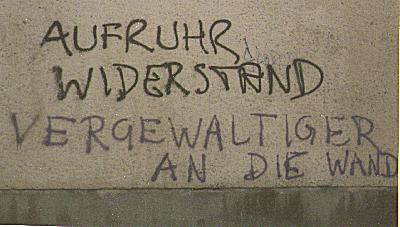 AUFRUHR
WIDERSTAND
VERGEWALTIGER
AN DIE WAND